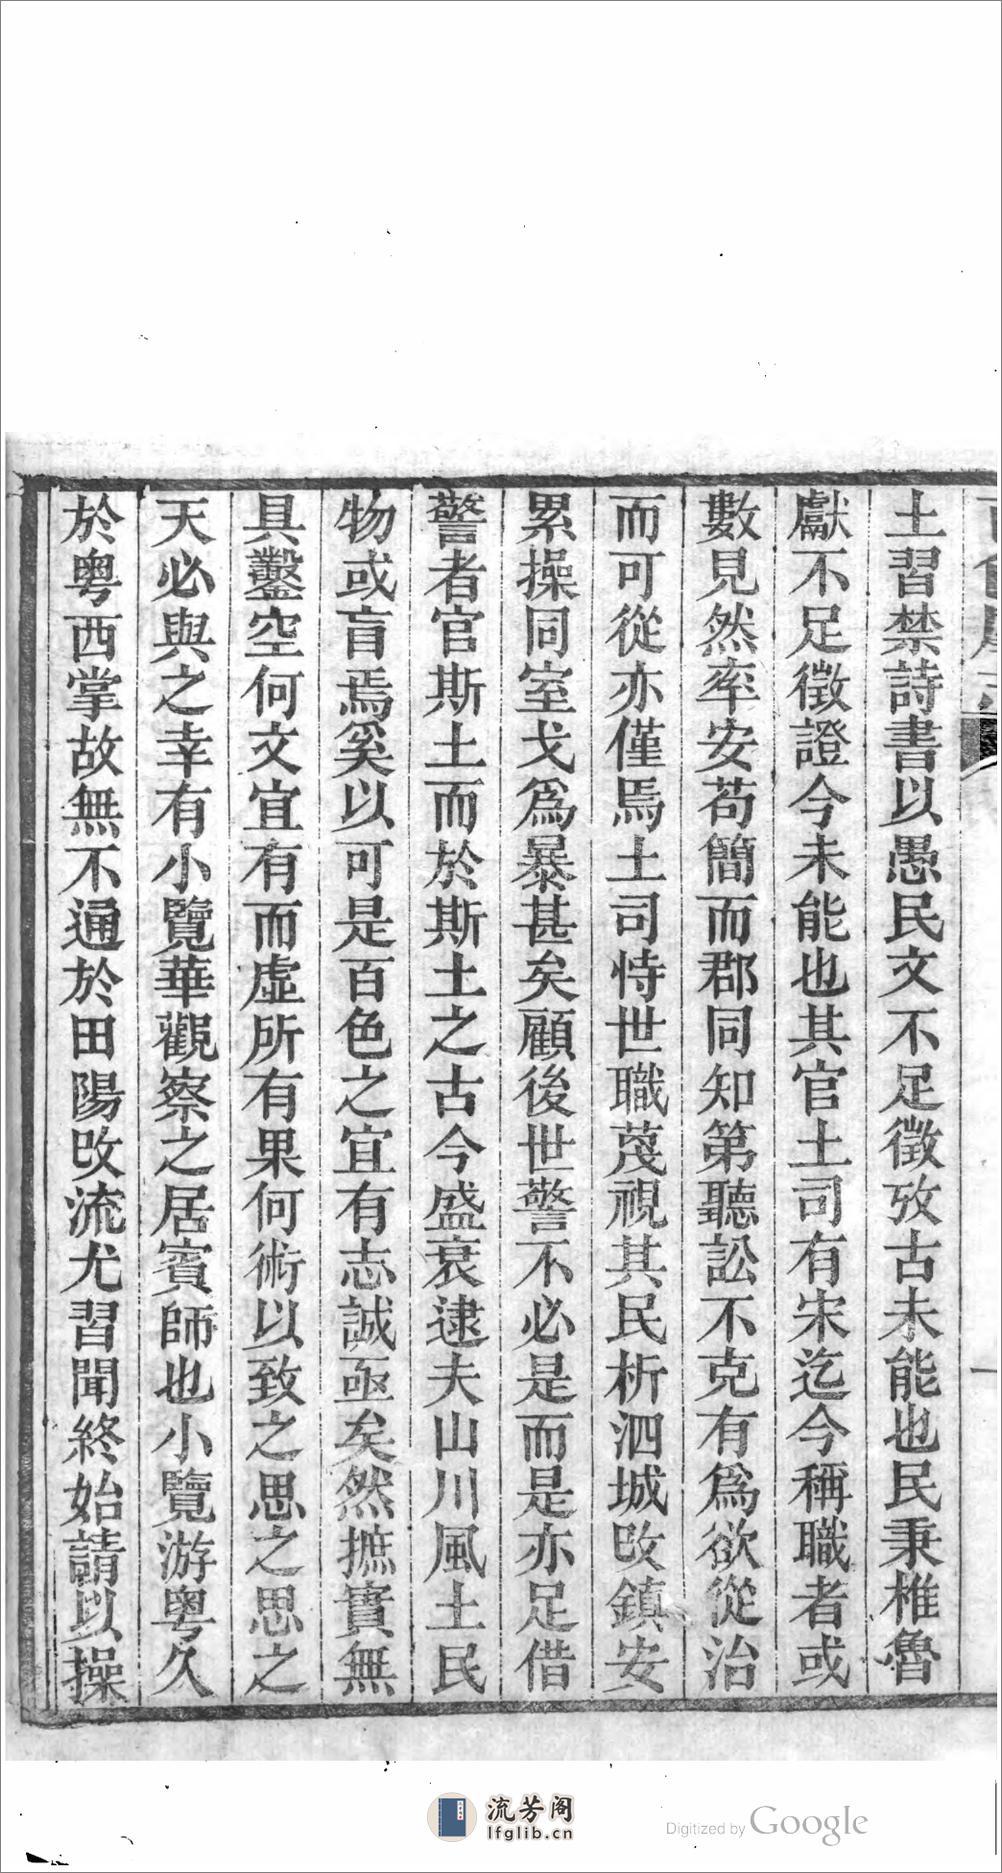 土習禁詩書以愚民文不足徵攷古未能也民秉椎魯
獻不足徵證今未能也其官土司有宋迄今稱職者或
數見然率安苟簡而郡同知第聽訟不克有爲欲從治
而可從亦僅焉土司恃世職蔑視其民析泗城改鎮安
累操同室戈爲暴甚矣顧後世警不必是而是亦足借
警者官斯土而於斯土之古今盛衰逮夫山川風土民
物或盲焉奚以可是百色之宜有志誠亟矣然摭實無
具鑿空何文宜有而虛所有果何術以致之思之思之
天必與之幸有小覽華觀察之居賓師也小覽游粵久
於粵西掌故無不通於田陽改流尤習聞終始請以操
流芳阁
lfglib.cn
Digitized by Google